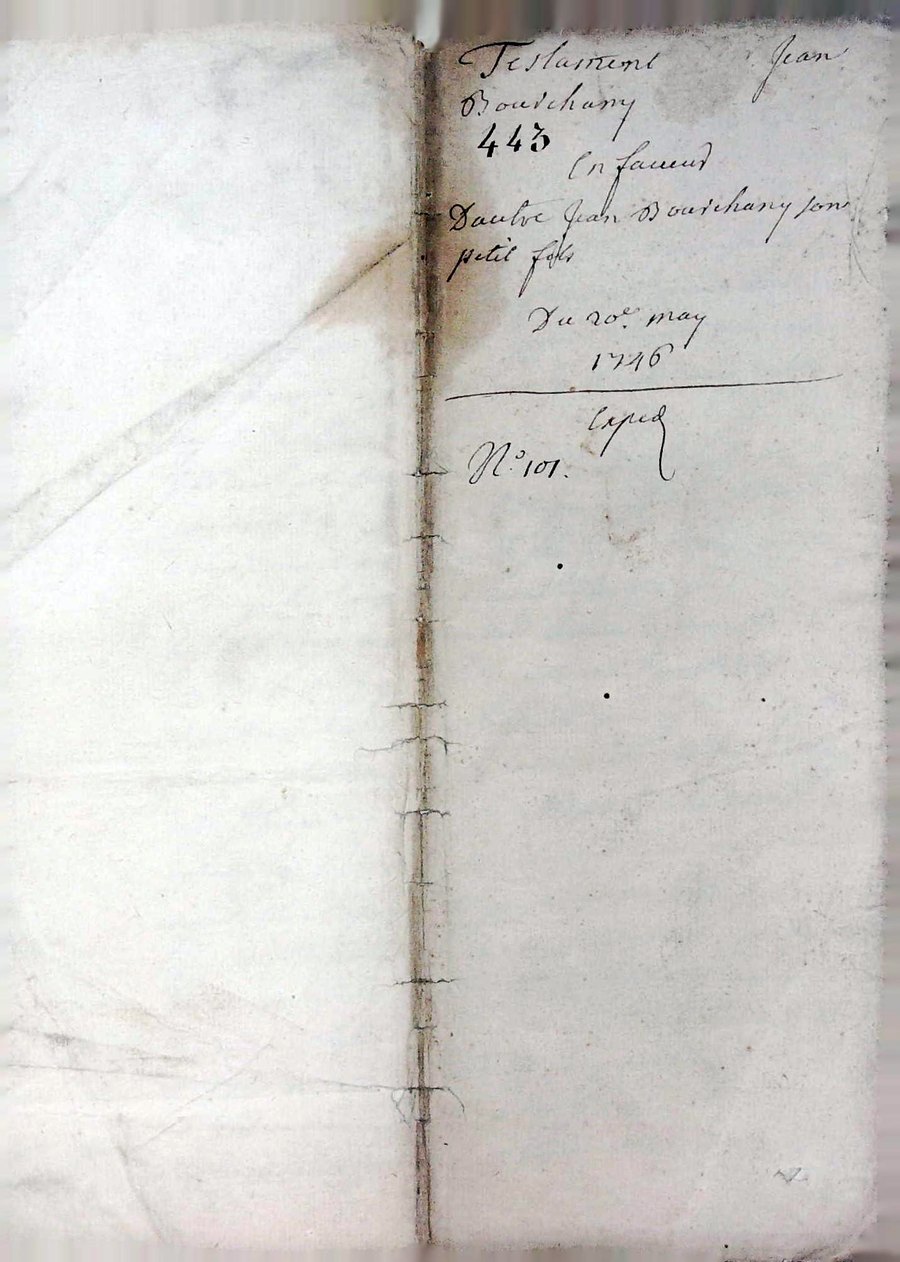 Testament Jean
Bourchany
443
En faueur
Dautre Jean Bourchany son
petit fils
Du 20e. may
1746
Exped
No. 101.